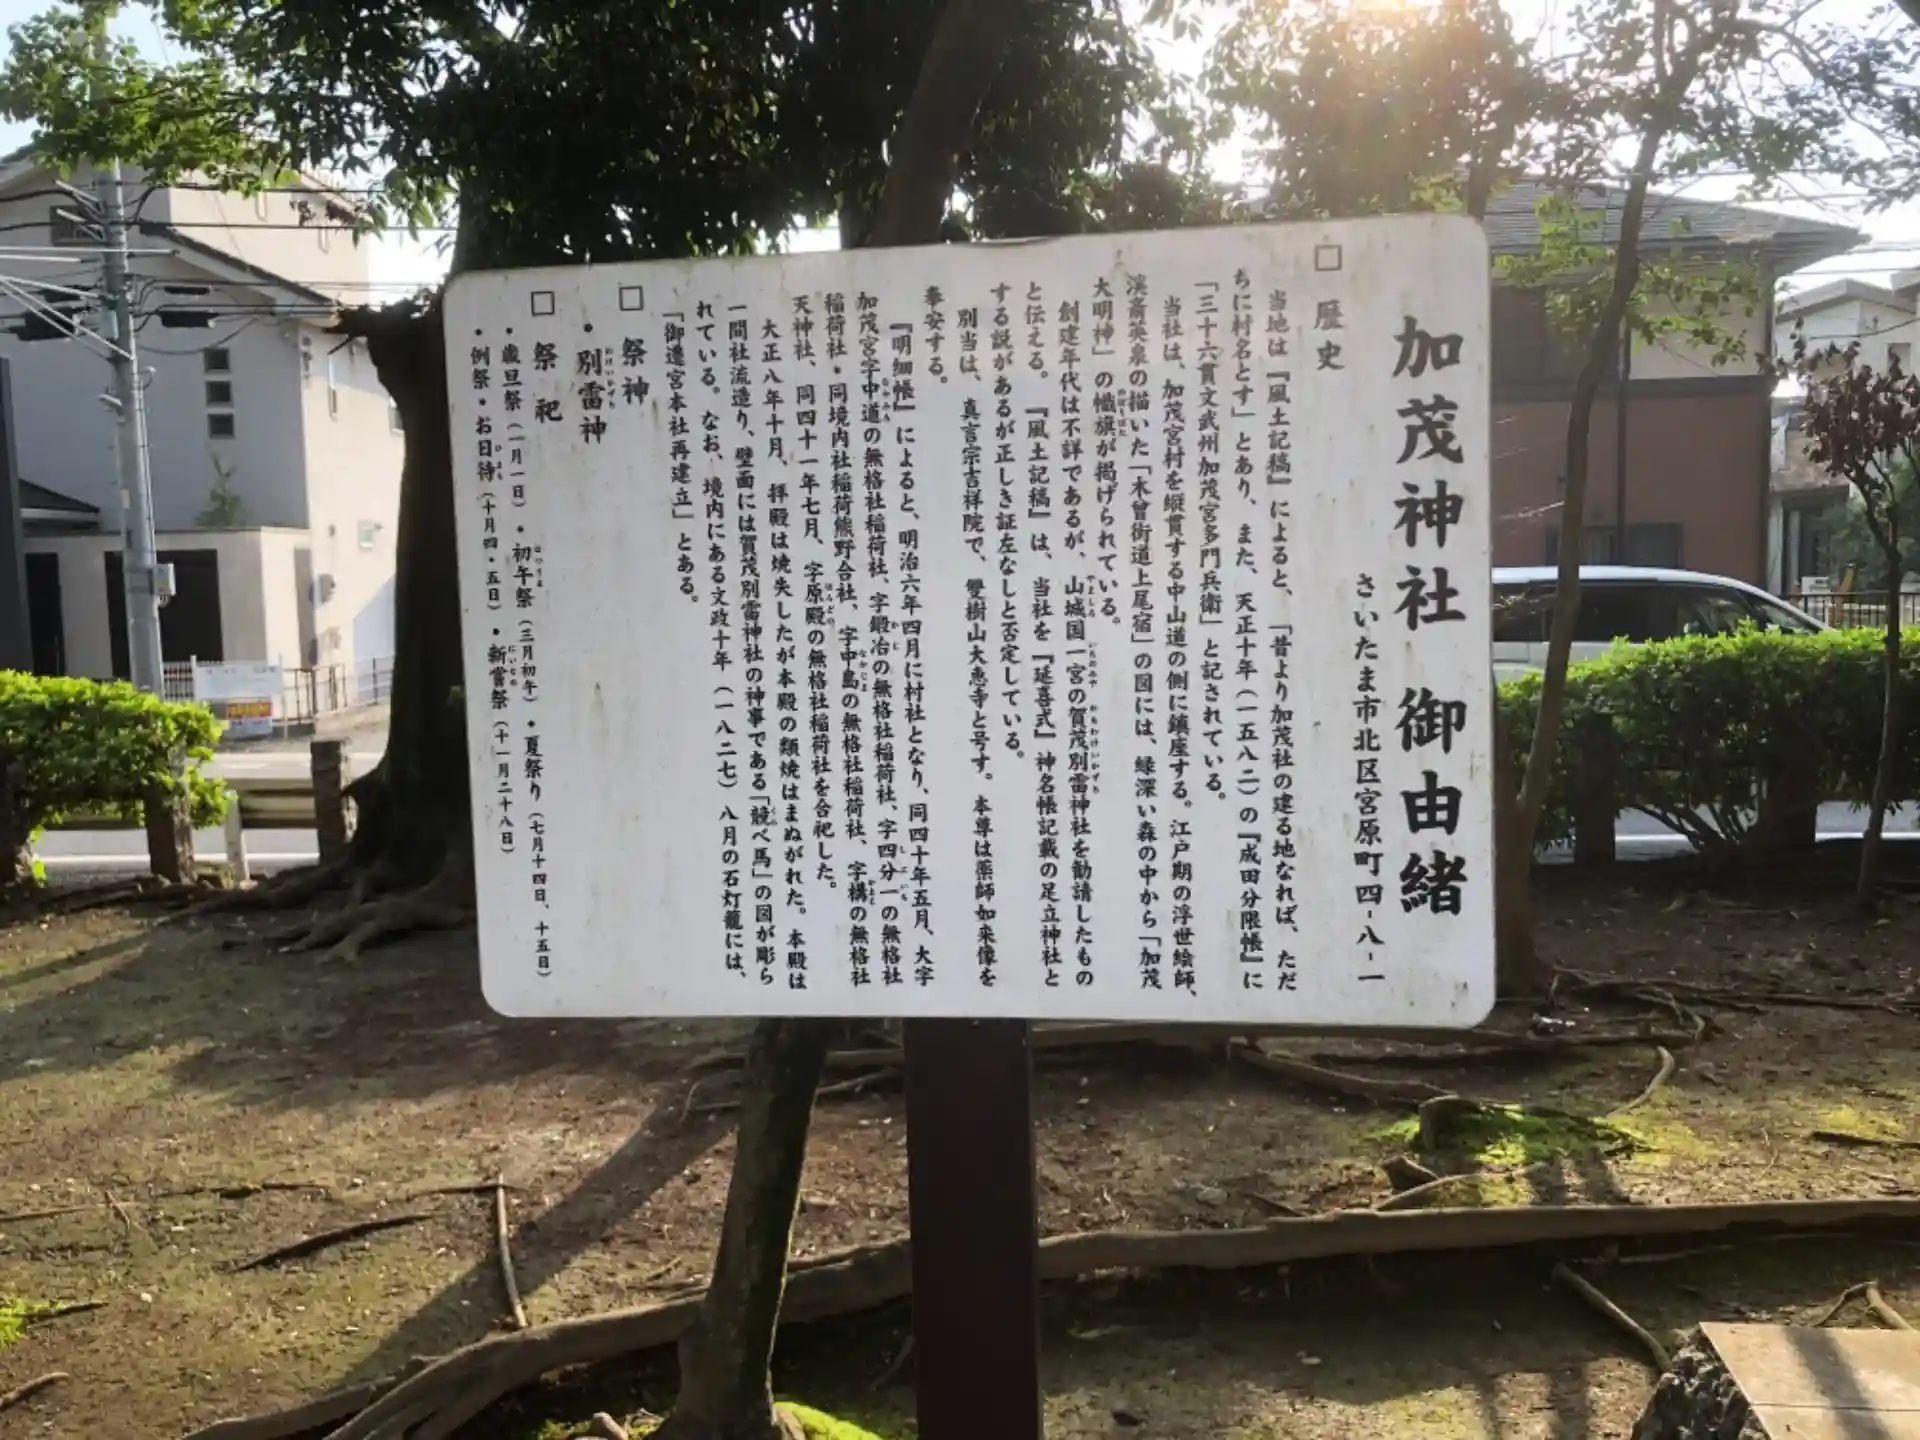 加茂神社 御由緒
さいたま市北区宮原町四-八-一
□ 歴史
当地は『風土記稿』によると、「昔より加茂社の建る地なれば、ただ
ちに村名とす」とあり、また、天正十年(一五八二)の『成田分限帳』に
「三十六貫文武州加茂宮多門兵衛」と記されている。
当社は、加茂宮村を縦貫する中山道の側に鎮座する。江戸期の浮世絵師、
渓斎英泉の描いた「木曾街道上尾宿」の図には、緑深い森の中から「加茂
大明神」の幟旗が掲げられている。
創建年代は不詳であるが、山城国一宮の賀茂別雷神社を勧請したもの
と伝える。『風土記稿』は、当社を『延喜式』神名帳記載の足立神社と
する説があるが正しき証左なしと否定している。
別当は、真言宗吉祥院で、雙樹山大恵寺と号す。本尊は薬師如来像を
奉安する。
『明細帳』によると、明治六年四月に村社となり、同四十年五月、大字
加茂宮字中道の無格社稲荷社、字鍛冶の無格社稲荷社、字四分一の無格社
稲荷社・同境内社稲荷熊野合社、字中島の無格社稲荷社、字構の無格社
天神社、同四十一年七月、字原殿の無格社稲荷社を合祀した。
大正八年十月、拝殿は焼失したが本殿の類焼はまぬがれた。本殿は
一間社流造り、壁面には賀茂別雷神社の神事である「競べ馬」の図が彫ら
れている。なお、境内にある文政十年(一八二七)八月の石灯籠には、
「御遷宮本社再建立」とある。
□ 祭神
・別雷神
□ 祭祀
・歳旦祭(一月一日)・初午祭(三月初午)・夏祭り(七月十四日、十五日)
・例祭・お日待(十月四・五日)・新嘗祭(十一月二十八日)